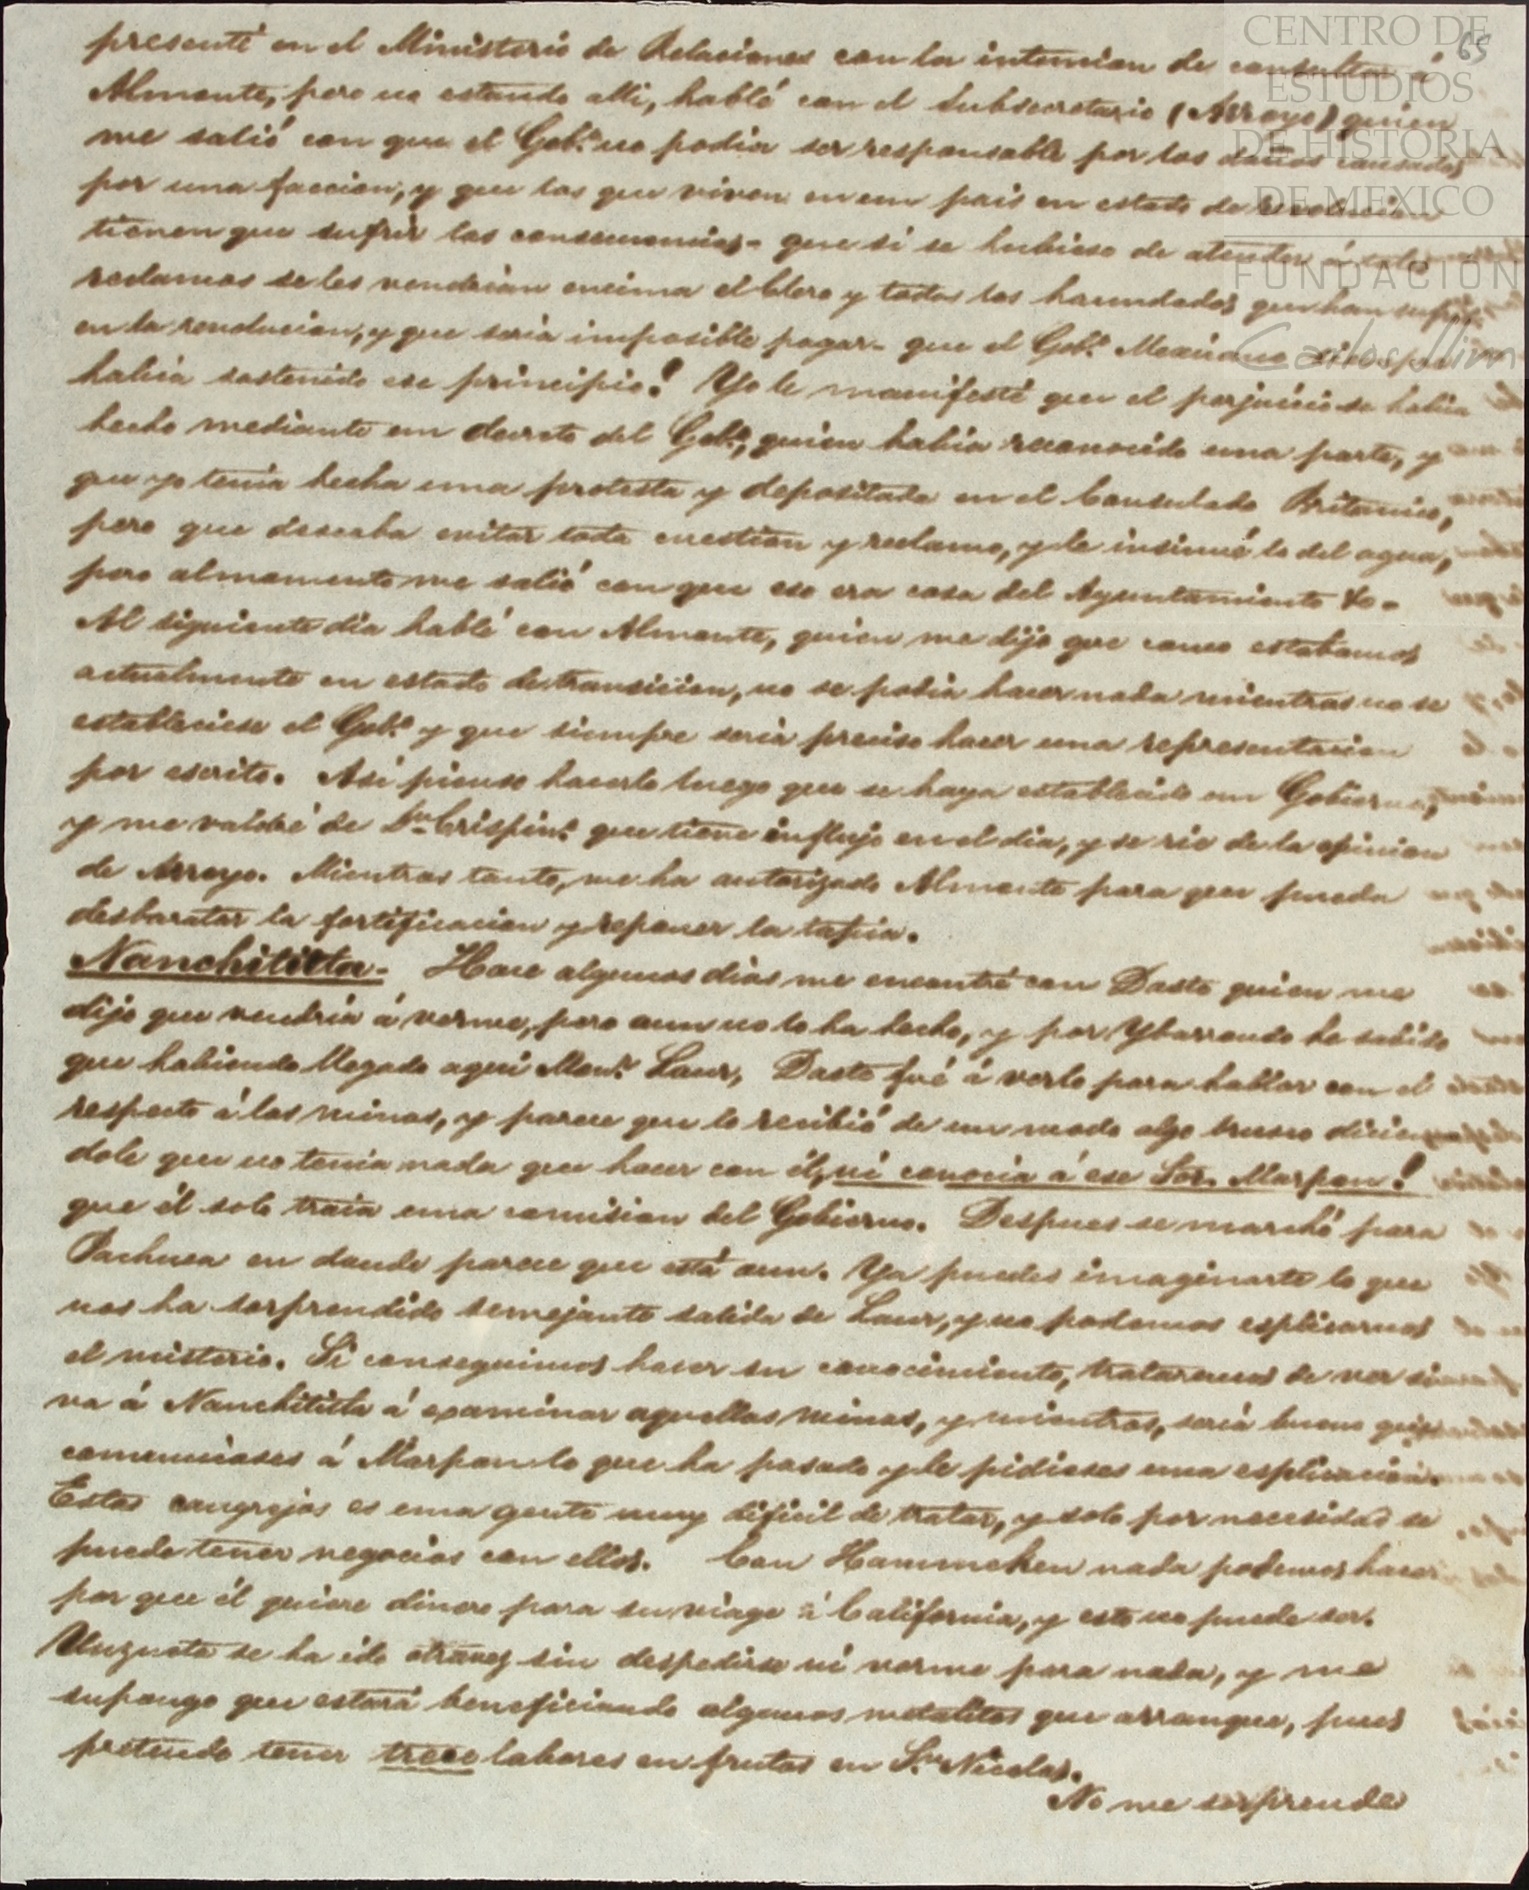 65
CENTRO DE
ESTUDIOS
DE HISTORIA
DE MEXICO
FUNDACIÓN
Carlos Slim
presenté en el Ministerio de Relaciones con la intencion de consultar á
Almonte, pero no estando alli, hablé con el Subsecretario (Arroyo) quien
me salió con que el Gobº no podia ser responsable por los daños causados
por una faccion, y que los que viven en un pais en estado de revolucion
tienen que sufrir las consecuencias - que si se hubiese de atender á tales
reclamos se les vendrian encima el Clero y todos los hacendados que han sufrido
en la revolucion, y que seria imposible pagar - que el Gobº Mexicano siempre
habia sostenido ese principio! Yo le manifesté que el perjuicio se habia
hecho mediante un decreto del Gobº, quien habia reconocido una parte, y
que yo tenia hecha una protesta y depositada en el Consulado Britanico,
pero que deseaba evitar toda cuestion y reclamo, y le insinué lo del agua,
pero al momento me salió con que eso era cosa del Ayuntamiento &c -
Al siguiente dia hablé con Almonte, quien me dijo que como estabamos
actualmente en estado de transicion, no se podia hacer nada mientras no se
estableciese el Gobº y que siempre seria preciso hacer una representacion
por escrito. Asi pienso hacerlo luego que se haya establecido un Gobierno,
y me valdré de Dn Crispinº que tiene influjo en el dia, y se rie de la opinion
de Arroyo. Mientras tanto, me ha autorizado Almonte para que pueda
desbaratar la fortificacion y reponer la tapia.
Nanchititla - Hace algunos dias me encontré con Daste quien me
dijo que vendria á verme, pero aun no lo ha hecho, y por Ybarrondo he sabido
que habiendo llegado aqui Monr. Laur, Daste fué á verlo para hablar con el
respecto á las minas, y parece que lo recibió de un modo algo brusco dicien
dole que no tenia nada que hacer con él, ni conocia á ese Sor. Marpon!
que él solo traia una comision del Gobierno. Despues se marchó para
Pachuca en donde parece que está aun. Ya puedes imaginarte lo que
nos ha sorprendido semejante salida de Laur, y no podemos esplicarnos
el misterio. Si conseguimos hacer su conocimiento, trataremos de ver si
va á Nanchititla á examinar aquellas minas, y mientras, seria bueno que
comunicases á Marpon lo que ha pasado y le pidieses una esplicacion.
Estos cangrejos es una gente muy dificil de tratar, y solo por necesidad se
puede tener negocios con ellos. Con Hammeken nada podemos hacer
por que él quiere dinero para su viage á California, y esto no puede ser.
Unzueta se ha ido otravez sin despedirse ni verme para nada, y me
supongo que estará beneficiando algunos metalitos que arranque, pues
pretende tener trece labores en frutos en Sn Nicolas.
No me sorprende